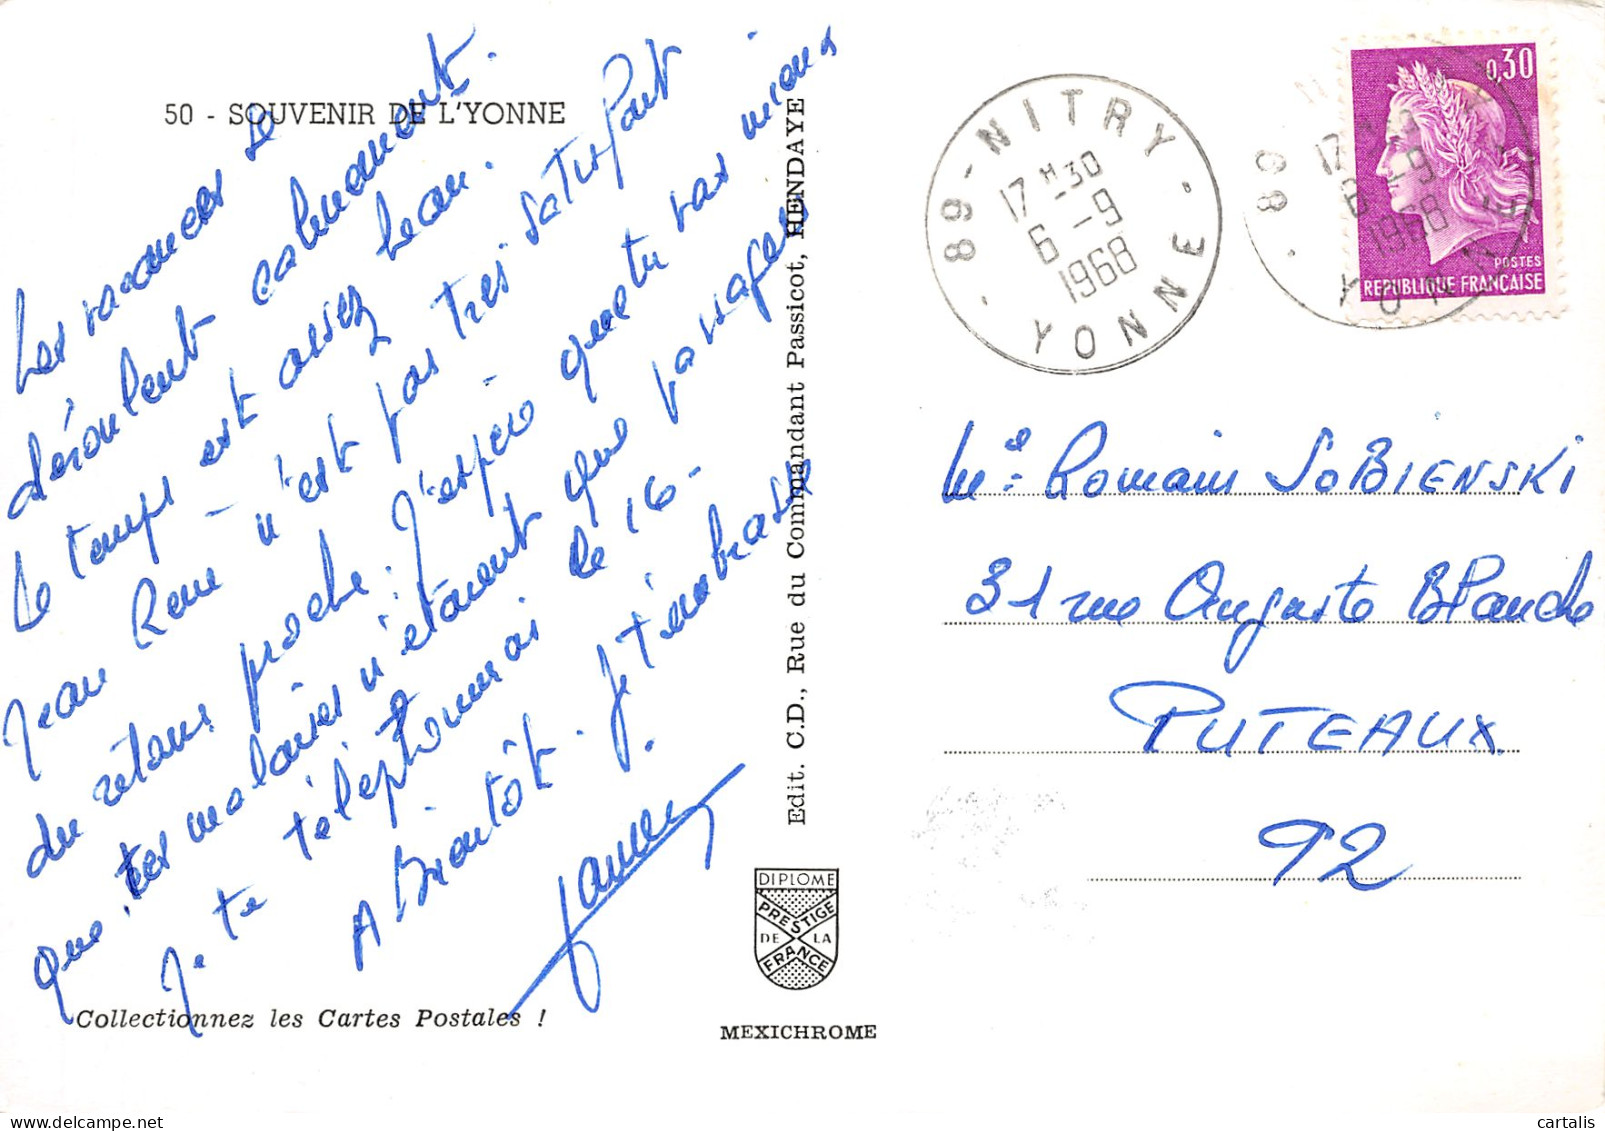 50 - SOUVENIR DE L'YONNE
Les vacances se
déroulent calmement.
Le temps est assez beau.
Jean René n'est pas très satisfait
du retour proche. J'espère que tu vas mieux
que tes malaises n'étaient que passagers
Je te téléphonerai le 16-
A Bientôt. Je t'embrasse.
Collectionnez les Cartes Postales !
Edit. C.D., Rue du Commandant Passicot, HENDAYE
DIPLOME
PRESTIGE
DE LA
FRANCE
MEXICHROME
89 - NITRY - YONNE
17 H 30
6 - 9
1968
0,30
POSTES
REPUBLIQUE FRANÇAISE
89
17 H 30
6 - 9
1968
YONNE
Romain SOBIENSKI
31 rue Auguste Blanche
PUTEAUX
92
cartalis